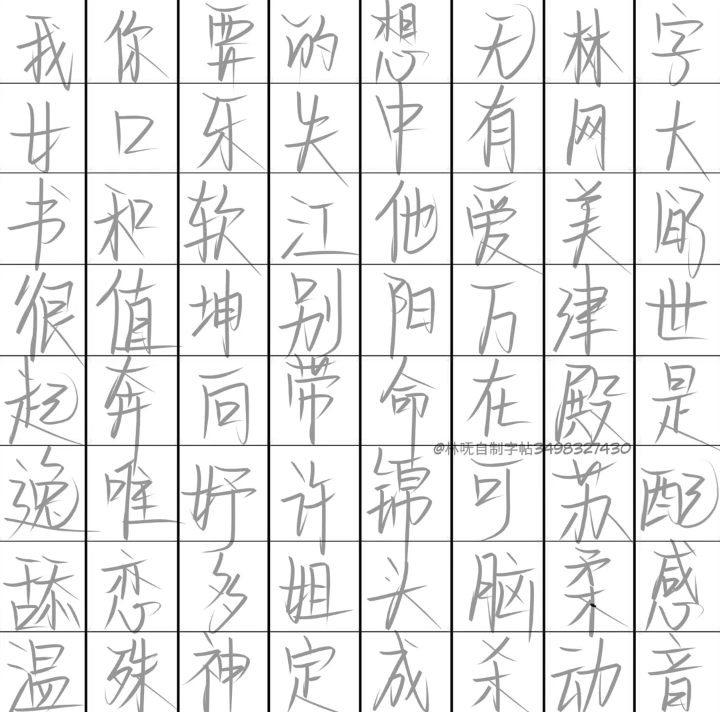 我你要的想无林字
女口牙失中有网大
书和软江他爱美间
很值坤别阳万津世
起奔向带命在殿是
@林呒自制字帖3498327430
逸唯好许锦可苏配
舔恋多姐头脑柔感
温殊神定成杀动音